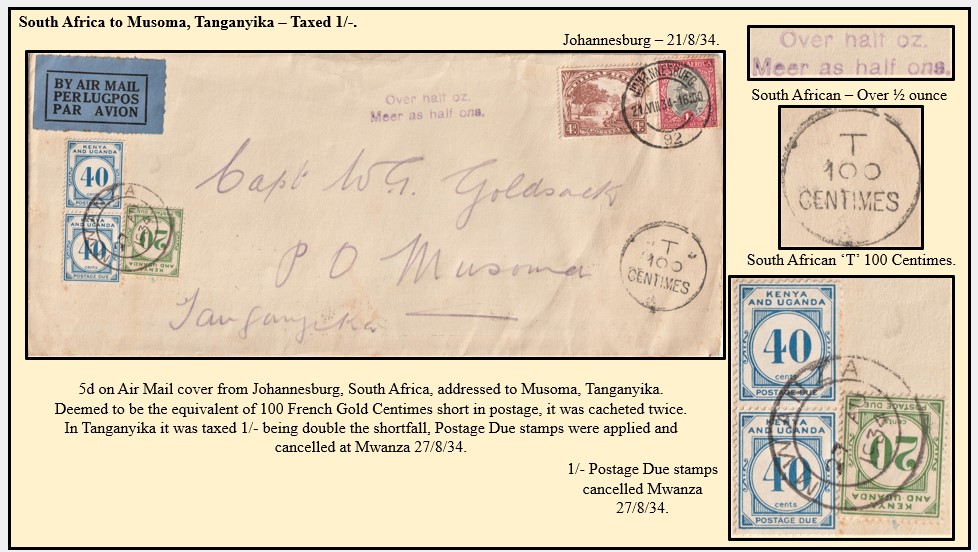 South Africa to Musoma, Tanganyika – Taxed 1/-.
Johannesburg – 21/8/34.
BY AIR MAIL
PERLUGPOS
PAR AVION
Over half oz.
Meer as half ons.
4D 4D
JOHANNESBURG
21.VIII.34-16
92
KENYA
AND UGANDA
40
cents
POSTAGE DUE
KENYA
AND UGANDA
40
cents
POSTAGE DUE
KENYA
AND UGANDA
20
POSTAGE DUE
MWANZA
Capt W. G. Goldsack
P O Musoma
Tanganyika
T
100
CENTIMES
Over half oz.
Meer as half ons.
South African – Over ½ ounce
T
100
CENTIMES
South African ‘T’ 100 Centimes.
KENYA
AND UGANDA
40
cents
POSTAGE DUE
KENYA
AND UGANDA
40
cents
POSTAGE DUE
KENYA
AND UGANDA
20
cents
POSTAGE DUE
MWANZA
5d on Air Mail cover from Johannesburg, South Africa, addressed to Musoma, Tanganyika.
Deemed to be the equivalent of 100 French Gold Centimes short in postage, it was cacheted twice.
In Tanganyika it was taxed 1/- being double the shortfall, Postage Due stamps were applied and
cancelled at Mwanza 27/8/34.
1/- Postage Due stamps
cancelled Mwanza
27/8/34.